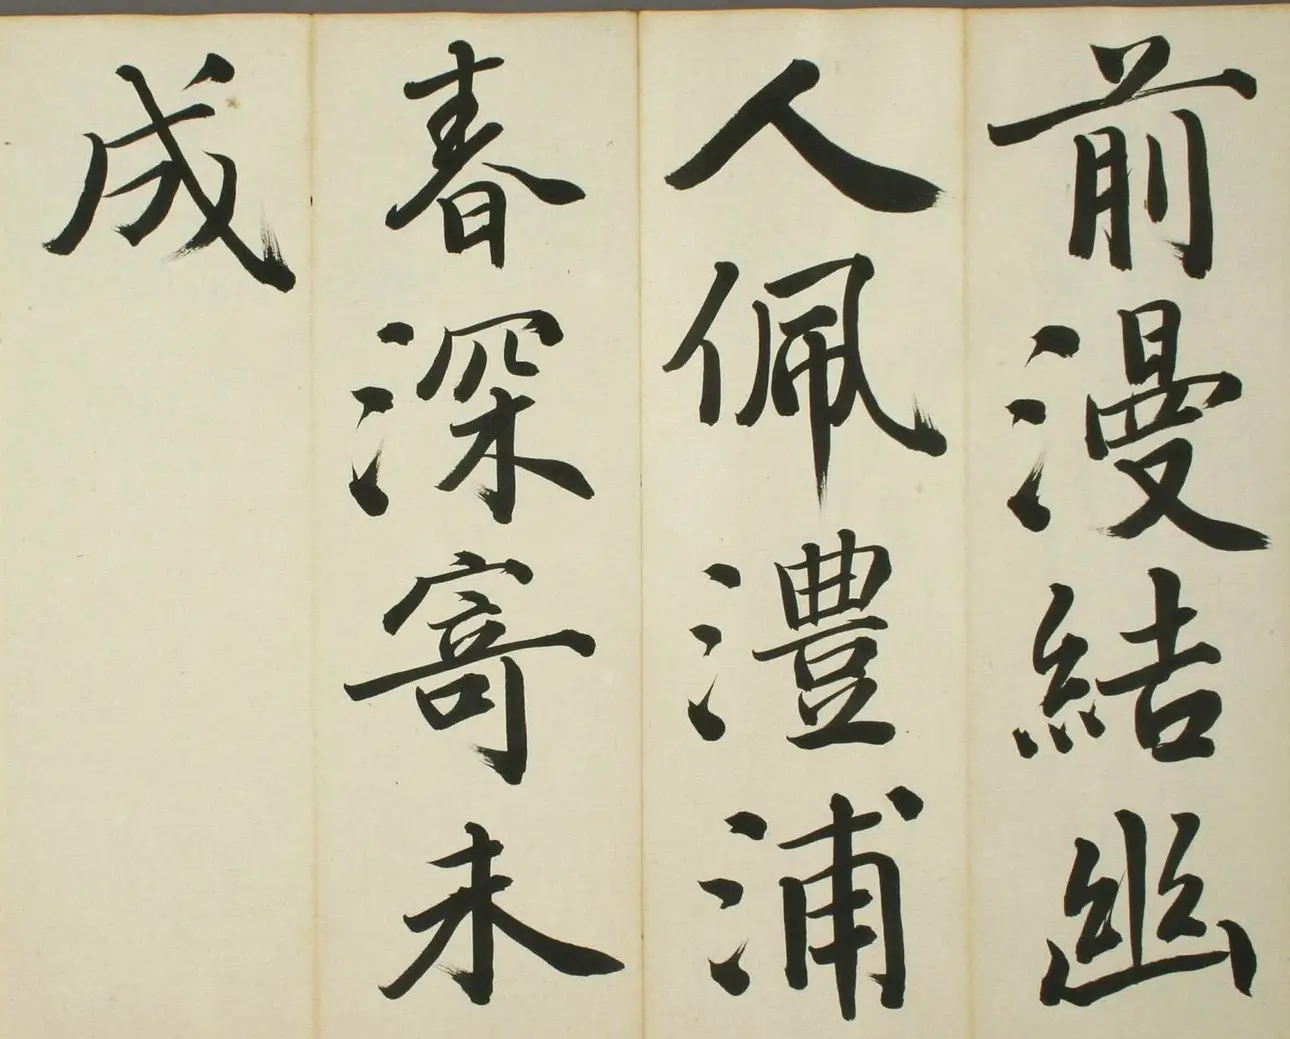 前漫結幽
人佩澧浦
春深寄未
成